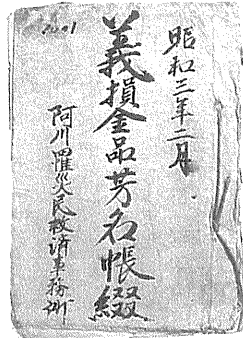 昭和三年二月
義損金品芳名帳綴
阿川罹災民救済事務所